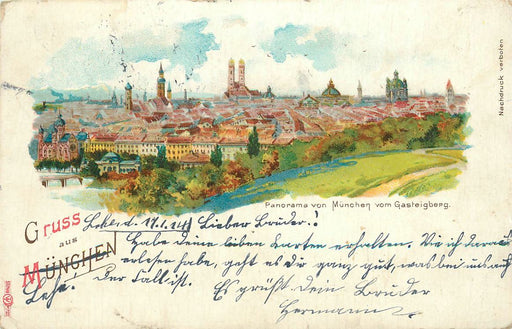 Nachdruck verboten
Panorama von München vom Gasteigberg.
Gruss
aus
MÜNCHEN
17.1. Lieber Bruder!
Habe deine lieben Karten erhalten. Wie ich daraus
ersehen habe, geht es dir ganz gut, was bei uns auch
der Fall ist. Es grüßt Dein Bruder
Hermann